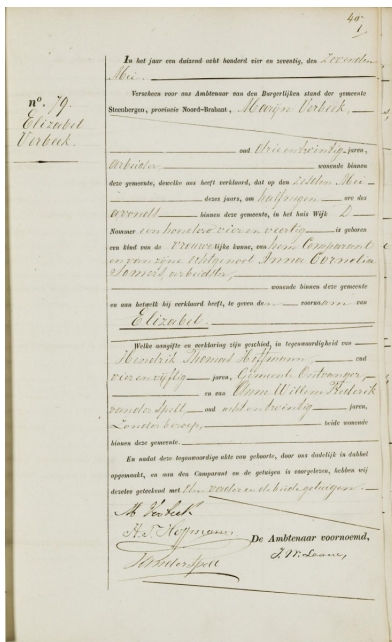 40
1
In het jaar een duizend acht honderd vier en zeventig, den Zevenden
Mei
Verscheen voor ons Ambtenaar van den Burgerlijken stand der gemeente
Steenbergen, provincie Noord-Brabant, Marijn Verbeek,
oud drie en twintig jaren,
arbeider, wonende binnen
deze gemeente, dewelke ons heeft verklaard, dat op den zesden Mei
dezes jaars, om half negen ure des
avonds binnen deze gemeente, in het huis Wijk D
Nummer een honderd vier en veertig is geboren
een kind van de vrouwelijke kunne, van hem Comparant
en van zijne echtgenoot Anna Cornelia
arbeidster,
wonende binnen deze gemeente
en aan hetwelk hij verklaard heeft, te geven den voornaam van
Elizabet.
Welke aangifte en verklaring zijn geschied, in tegenwoordigheid van
Hendrik Thomas Hoffmann, oud
vier en vijftig jaren, Gemeente Ontvanger,
en van Willem Frederik
van der Spelt, oud acht en twintig jaren,
Zonder beroep, beide wonende
binnen deze gemeente.
En nadat deze tegenwoordige akte van geboorte, door ons dadelijk in dubbel
opgemaakt, en aan den Comparant en de getuigen is voorgelezen, hebben wij
dezelve geteekend met den vader en de beide getuigen.
M Verbeek
H. T. Hoffmann
De Ambtenaar voornoemd,
van der Spelt
nº. 79.
Elizabet
Verbeek.